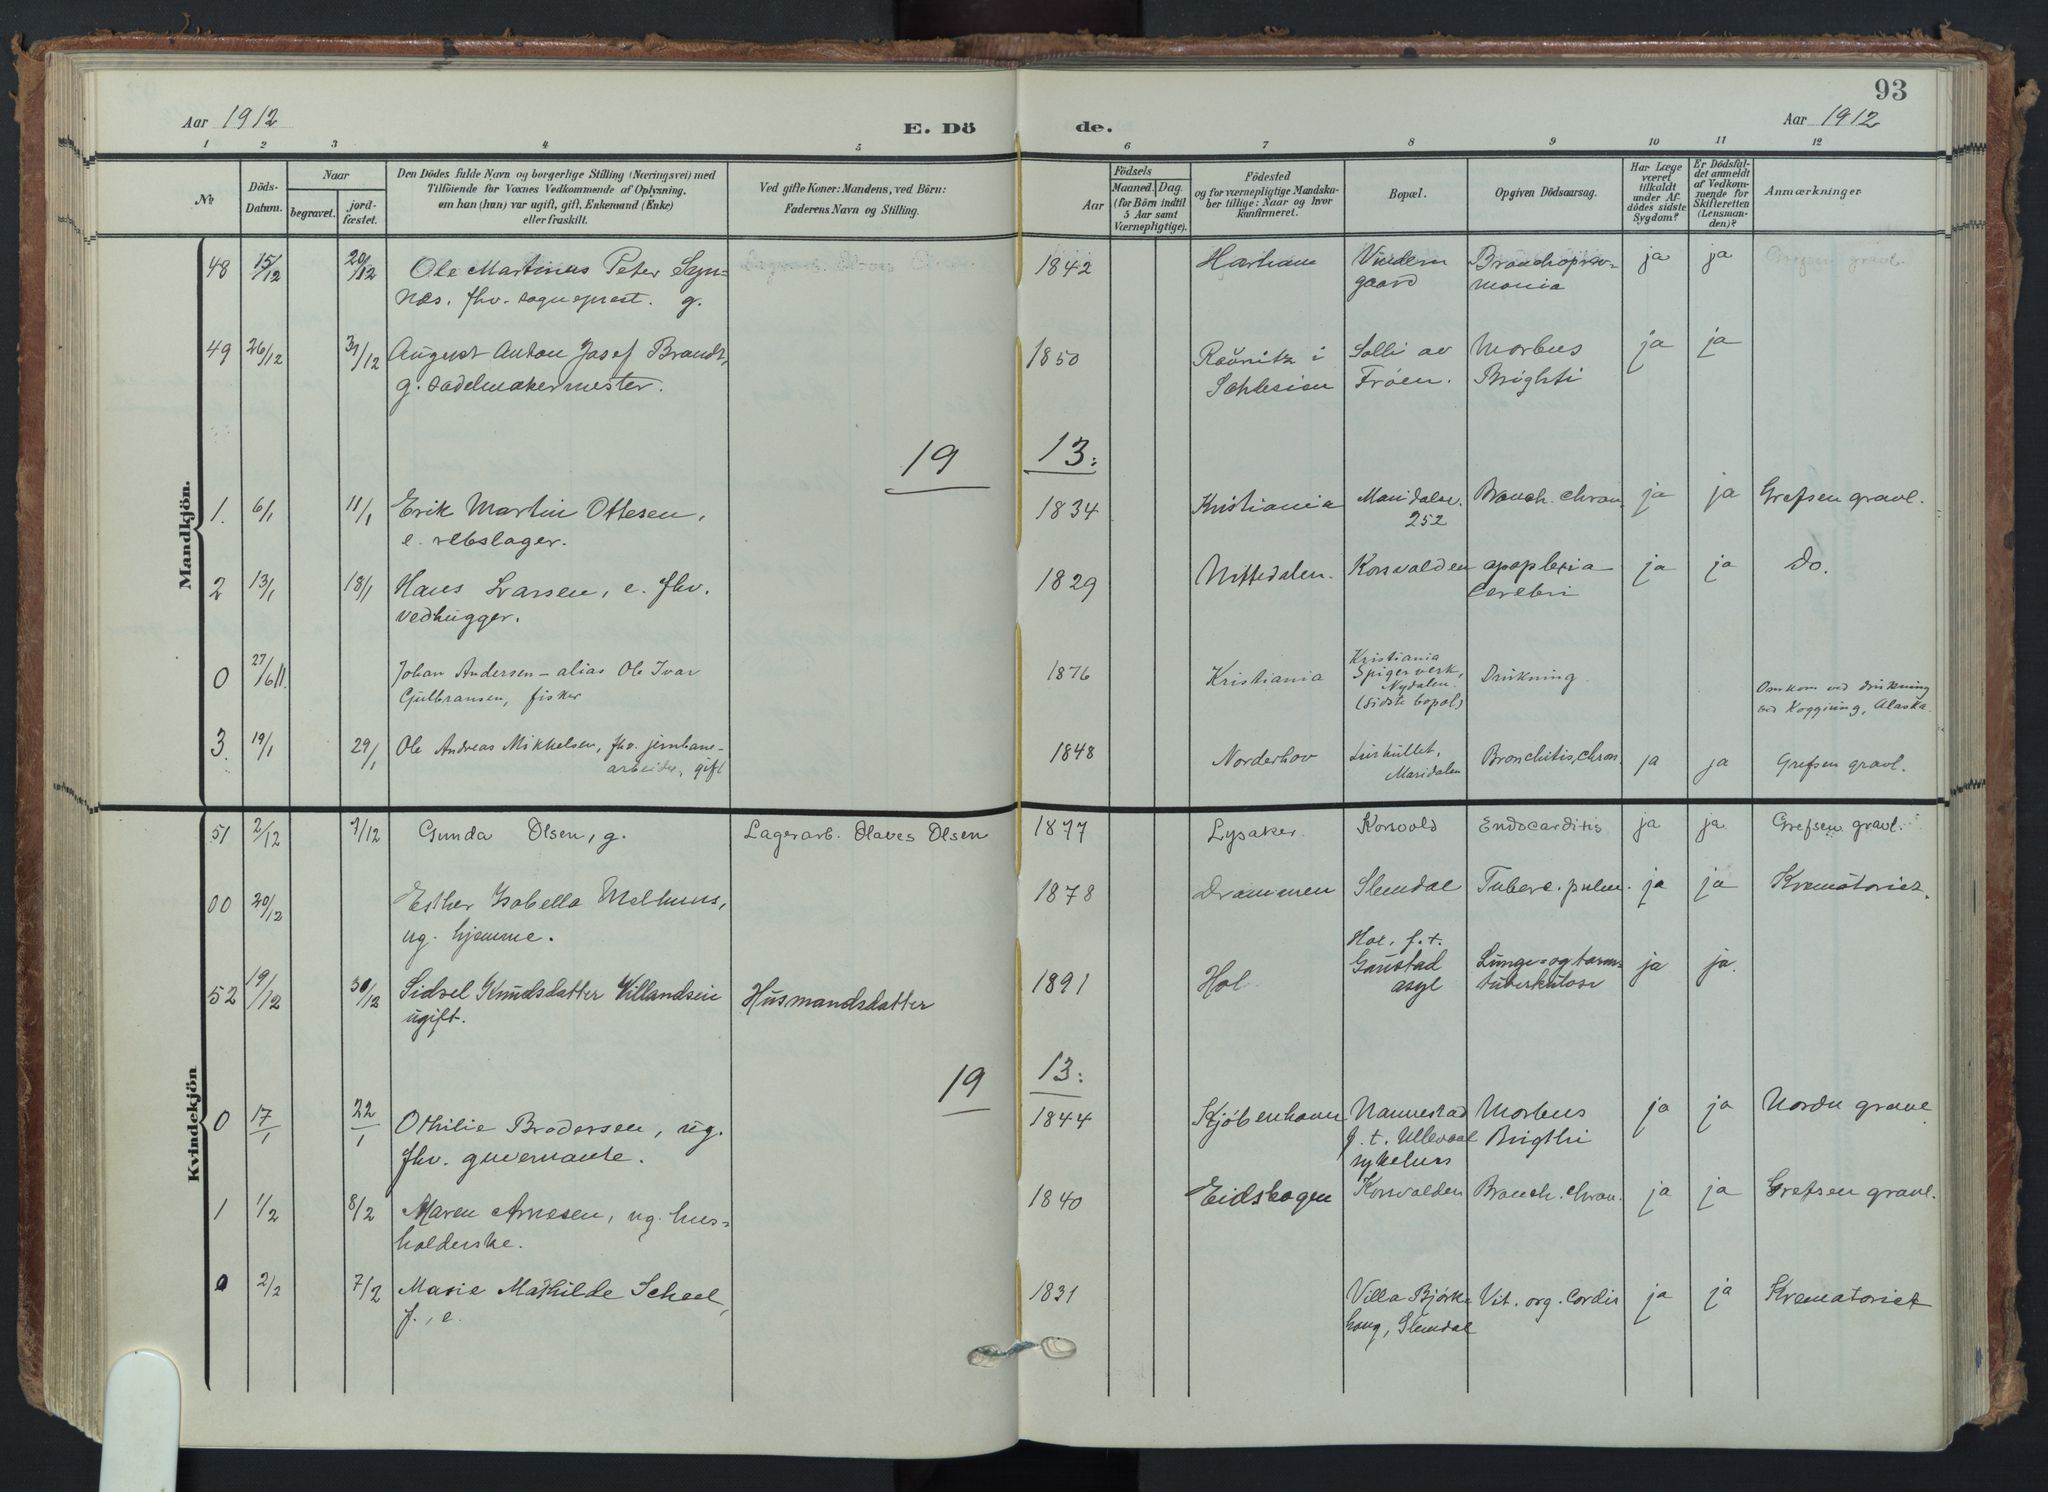 Aar 1912
E. Dö
de.
93
Aar 1912
1 2 3 4 5 6 7 8 9 10 11 12
№
Döds-
Datum.
Naar
begravet.
jord-
fæstet.
Den Dödes fulde Navn og borgerlige Stilling (Næringsvei) med
Tilföiende for Voxnes Vedkommende af Oplysning,
om han (hun) var ugift, gift, Enkemand (Enke)
eller fraskilt.
Ved gifte Koner: Mandens, ved Börn:
Faderens Navn og Stilling.
Födsels
Aar
Maaned. Dag.
(for Börn indtil
5 Aar samt
Værnepligtige).
Födested
og for værnepligtige Mandska-
ber tillige: Naar og hvor
konfirmeret.
Bopæl.
Opgiven Dödsaarsag.
Har Læge
været
tilkaldt
under Af-
dödes sidste
Sygdom?
Er Dödsfal-
det anmeldt
af Vedkom-
mende for
Skifteretten
(Lensman-
den)?
Anmærkninger
Mandkjön.
48 15/12 20/12 Ole Martinus Peter 1842 Vindern ja ja
fhv. sogneprest. g. gaard
49 26/12 31/12 August Anton Josef Brandt, 1850 i Solli av Morbus ja ja
g. sadelmakermester. Schlesien Frøen. Brighti
19 13:
1. 6/1 11/1 Erik Martin Ottesen, 1834 Kristiania Maridalsv. Bronch. chron. ja ja Grefsen gravl.
e. rebslager. 252
2 13/1 18/1 Hans Larsen, e. fhv. 1829 Nittedalen. Korsvolden apoplexia ja ja Do.
vedhugger. Cerebri
0 27/6 11. Johan Andersen – alias Ole Ivar 1876 Kristiania Kristiania Drukning
Gulbransen, fisker Spigerverk,
Nydalen.
(sidste bopæl)
Omkom ved drukning
ved Koggiung, Alaska.
3. 19/1 29/1 Ole Andreas Mikkelsen, fhv. jernbane- 1848 Norderhov Bronchitis, chron. ja ja Grefsen gravl.
arbeider, gift Maridalen
Kvindekjön
51 2/12 7/12 Gunda Olsen, g. Lagerarb. Olaves Olsen 1877 Lysaker. Korsvold Endocarditis ja ja Grefsen gravl.
00 20/12 Esther Isabella Melhuus, 1878 Drammen Slemdal Tuberc. pulm. ja ja Krematoriet.
ug. hjemme.
52 19/12 30/12 Sidsel Knudsdatter Villandseie Husmandsdatter 1891 Hol Hol, f. t. Lunge- og tarm- ja ja.
ugift. Gaustad tuberkulose
asyl
19 13:
0 17/1 22/1 Othilie Brodersen, ug. 1844 Kjøbenhavn Nannestad Morbus ja ja Nordre gravl.
fhv. guvernante. f. t. Ullevaal Brigthi
sykehus
1 1/2 8/2 Maren Arnesen, ug. hus- 1840 Eidskogen Korsvolden Bronch. chron. ja ja Grefsen gravl.
holderske.
0 2/2 7/2 Marie Mathilde Scheel, 1831 Villa Bjørk- Vit. org. Cordis ja ja Krematoriet
f., e. haug, Slemdal